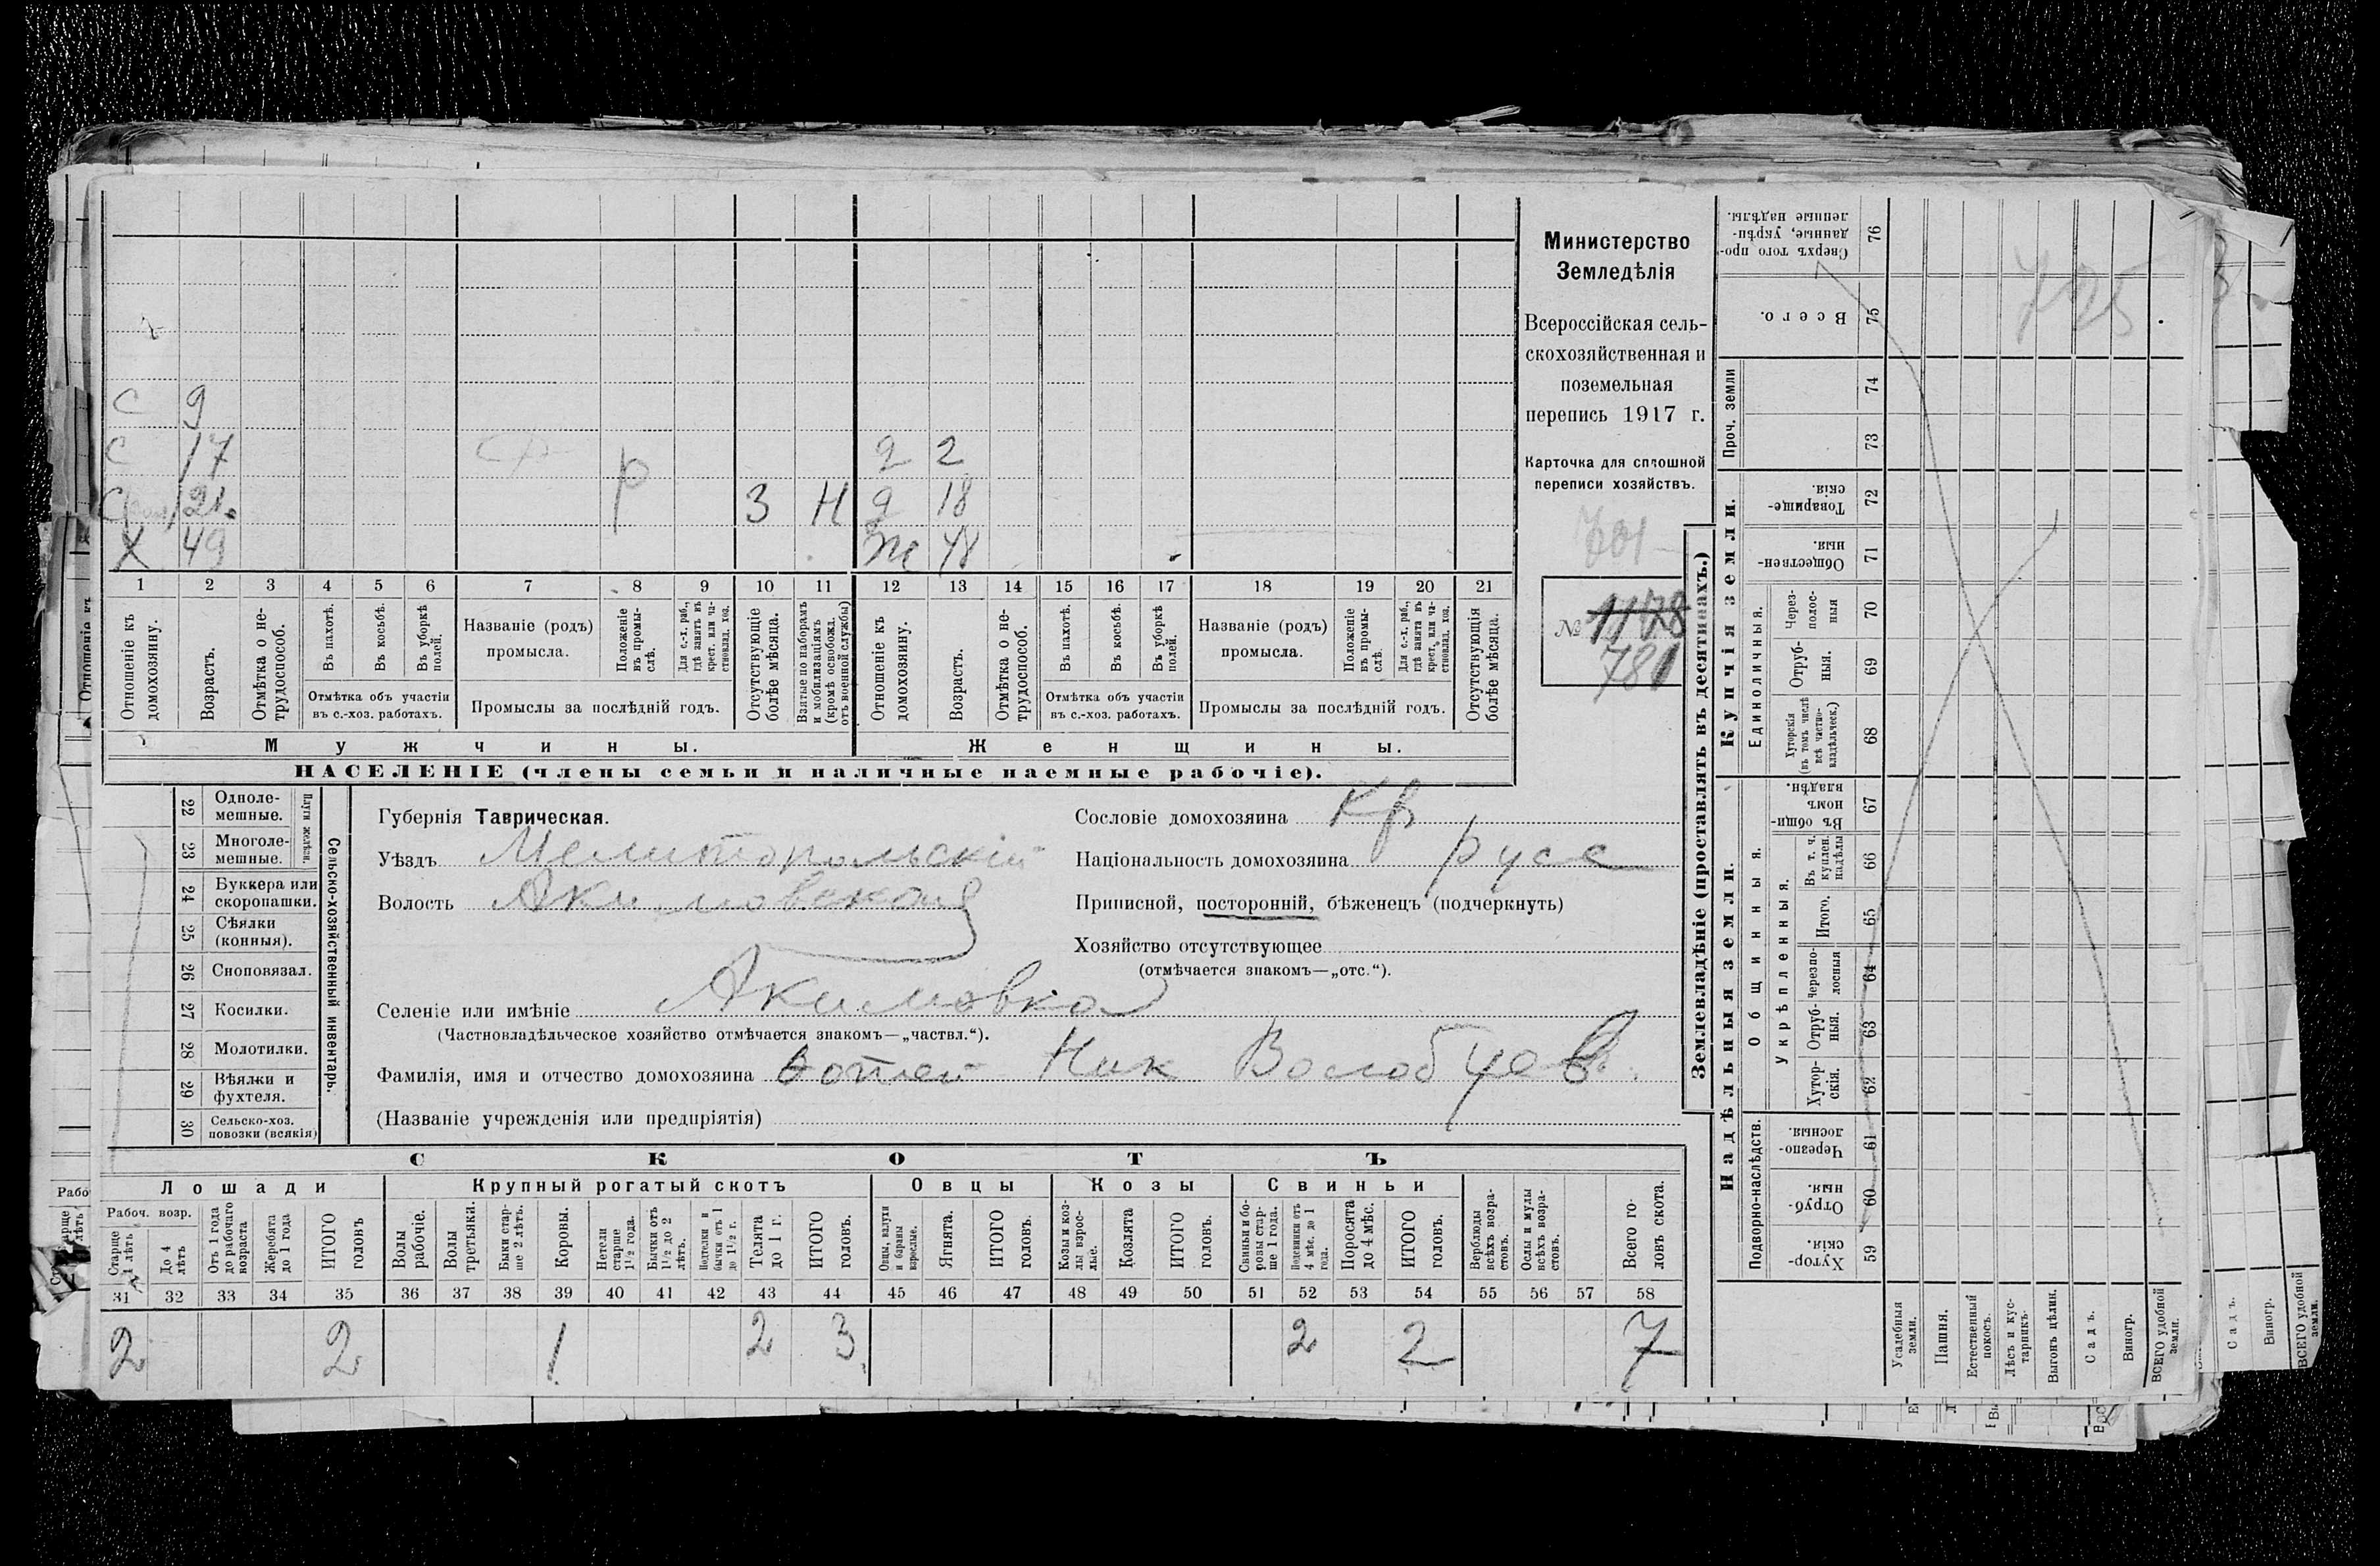 С 9
С 17 р д 2
С 21 3 Н д 18
Х 49 ж 48
1 2 3 4 5 6 7 8 9 10 11 12 13 14 15 16 17 18 19 20 21
Отношеніе къ домохозяину.
Возрастъ.
Отмѣтка о не-трудоспособ.
Въ пахотѣ.
Въ косьбѣ.
Въ уборкѣ полей.
Отмѣтка объ участіи въ с.-хоз. работахъ.
Названіе (родъ) промысла.
Положеніе въ промы-слѣ.
Для с.-х. раб., гдѣ занятъ въ крест. или ча-стновлад. хоз.
Промыслы за послѣдній годъ.
Отсутствующіе болѣе мѣсяца.
Взятые по наборамъ и мобилизаціямъ (кромѣ освобожд. отъ военной службы)
Отношеніе къ домохозяину.
Возрастъ.
Отмѣтка о не-трудоспособ.
Въ пахотѣ.
Въ косьбѣ.
Въ уборкѣ полей.
Отмѣтка объ участіи въ с.-хоз. работахъ.
Названіе (родъ) промысла.
Положеніе въ промы-слѣ.
Для с.-х. раб., гдѣ занята въ крест. или ча-стновлад. хоз.
Промыслы за послѣдній годъ.
Отсутствующія болѣе мѣсяца.
Мужчины. Женщины.
НАСЕЛЕНІЕ (члены семьи и наличные наемные рабочіе).
Министерство
Земледѣлія
Всероссійская сель-
скохозяйственная и
поземельная
перепись 1917 г.
Карточка для сплошной
переписи хозяйствъ.
701
№ 1178
781
Сельско-хозяйственный инвентарь.
Плуги желѣзн.
22 Одноле-мешные.
23 Многоле-мешные.
24 Буккера или скоропашки.
25 Сѣялки (конныя).
26 Сноповязал.
27 Косилки.
28 Молотилки.
29 Вѣялки и фухтеля.
30 Сельско-хоз. повозки (всякія)
Губернія Таврическая.
Уѣздъ Мелитопольскій
Волость Акимовская
Селеніе или имѣніе Акимовка
(Частновладѣльческое хозяйство отмѣчается знакомъ—„частвл.“).
Фамилія, имя и отчество домохозяина Ник Волобуев
(Названіе учрежденія или предпріятія)
Сословіе домохозяина Кр
Національность домохозяина русс
Приписной, посторонній, бѣженецъ (подчеркнуть)
Хозяйство отсутствующее
(отмѣчается знакомъ—„отс.“).
СКОТЪ
Лошади Крупный рогатый скотъ Овцы Козы Свиньи
Рабоч. возр.
Старше 4 лѣтъ
До 4 лѣтъ
Отъ 1 года до рабочаго возраста
Жеребята до 1 года
ИТОГО головъ
Волы рабочіе.
Волы третьяки.
Быки стар-ше 2 лѣтъ.
Коровы.
Нетели старше 1½ года.
Бычки отъ 1½ до 2 лѣтъ.
Подтелки и бычки отъ 1 до 1½ г.
Телята до 1 г.
ИТОГО головъ.
Овцы, валухи и бараны взрослые.
Ягнята.
ИТОГО головъ.
Козы и коз-лы взрос-лые.
Козлята
ИТОГО головъ.
Свиньи и бо-ровы стар-ше 1 года.
Подсвинки отъ 4 мѣс. до 1 года.
Поросята до 4 мѣс.
ИТОГО головъ.
Верблюды всѣхъ возра-стовъ.
Ослы и мулы всѣхъ возра-стовъ.
Всего го-ловъ скота.
31 32 33 34 35 36 37 38 39 40 41 42 43 44 45 46 47 48 49 50 51 52 53 54 55 56 57 58
2 2 1 2 3 2 2 7
Землевладѣніе (проставлять въ десятинахъ.)
Надѣльныя земли. Купчія земли.
Подворно-наслѣдств.
Общинныя.
Укрѣпленныя.
Единоличныя.
Проч. земли
59 Хутор-скія.
60 Отруб-ныя.
61 Черезпо-лосныя.
62 Хутор-скія.
63 Отруб-ныя.
64 Черезпо-лосныя
65 Итого.
66 Въ т. ч. куплен. надѣлы
67 Въ общин-номъ владѣн.
68 Хуторскія (въ томъ числѣ всѣ частно-владѣльческ.)
69 Отруб-ныя.
70 Через-полос-ныя
71 Обществен-ныя.
72 Товарище-скія.
73
74
75 Всего.
76 Сверхъ того про-данные, укрѣп-ленные надѣлы.
725
Усадебныя земли.
Пашня.
Естественный покосъ.
Лѣсъ и кус-тарникъ.
Выгонъ цѣлин.
Садъ.
Виногр.
ВСЕГО удобной земли.
Садъ.
Виногр.
ВСЕГО удобной земли.